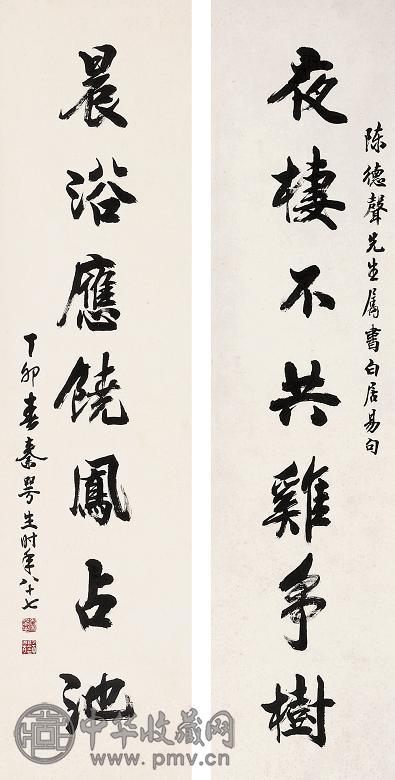 陈德聲先生属書白居易句
夜棲不共雞爭樹
晨浴應饒鳳占池
丁卯春秦咢生时年八十七
中华收藏网
www.pmv.cn